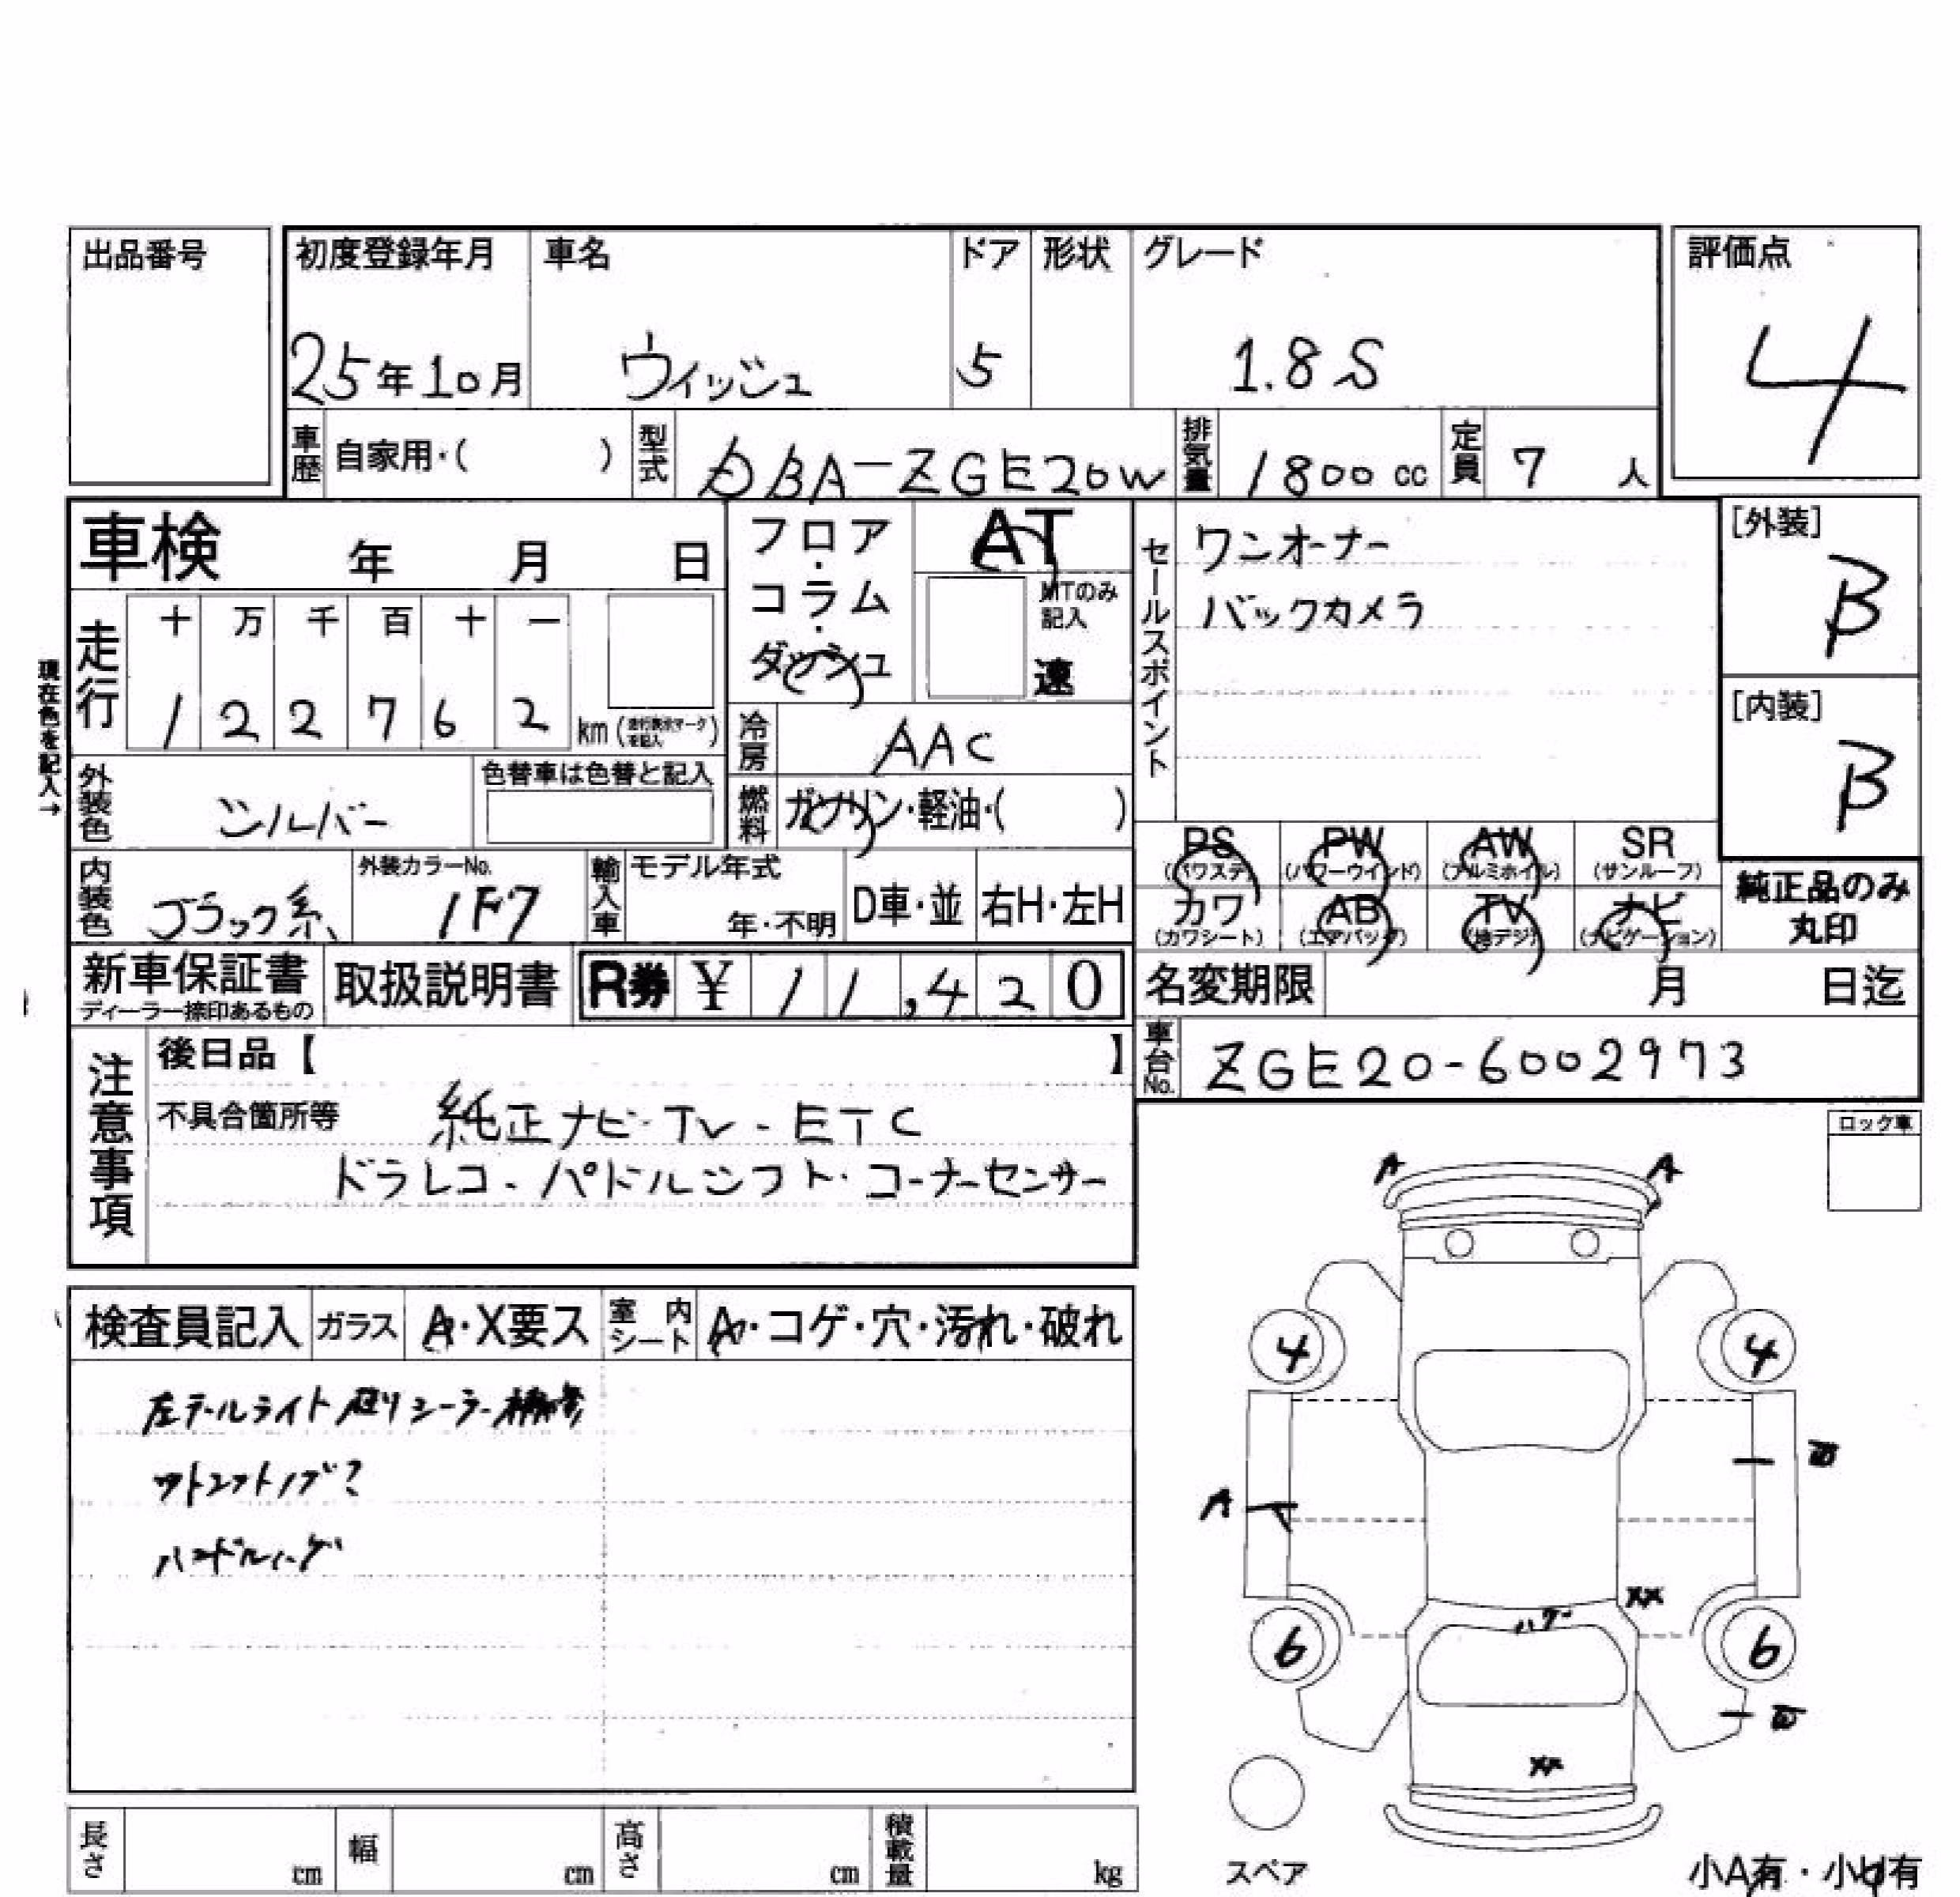 出品番号
初度登録年月 車名 ドア 形状 グレード 評価点
25年10月 ウィッシュ 5 1.8S 4
車歴 自家用・( ) 型式 DBA-ZGE20W 排気量 1800cc 定員 7人
車検 年 月 日
フロア・コラム・ダッシュ AT
MTのみ記入 速
セールスポイント
ワンオーナー
バックカメラ
[外装] B
[内装] B
現在色を記入→
走行 十 万 千 百 十 一
1 2 2 7 6 2 km (走行表示マークを記入)
冷房 AAC
外装色 シルバー 色替車は色替と記入
燃料 ガソリン・軽油・( )
PS (パワステ) PW (パワーウインド) AW (アルミホイル) SR (サンルーフ)
カワ (カワシート) AB (エアバッグ) TV (地デジ) ナビ (ナビゲーション)
純正品のみ丸印
内装色 ブラック系 外装カラーNo. 1F7 輸入車 モデル年式 年・不明 D車・並 右H・左H
新車保証書 ディーラー捺印あるもの 取扱説明書 R券 ¥ 11,420
名変期限 月 日迄
車台No. ZGE20-6002973
注意事項
後日品【 】
不具合箇所等 純正ナビ・TV・ETC
ドラレコ・パドルシフト・コーナーセンサー
ロック車
検査員記入 ガラス A・X要ス 室内シート A・コゲ・穴・汚れ・破れ
左テールライト廻りシーラー補修
ハンドル
A A
4 4
A
XX
6 6
XX
スペア
長さ cm 幅 cm 高さ cm 積載量 kg
小A有・小U有